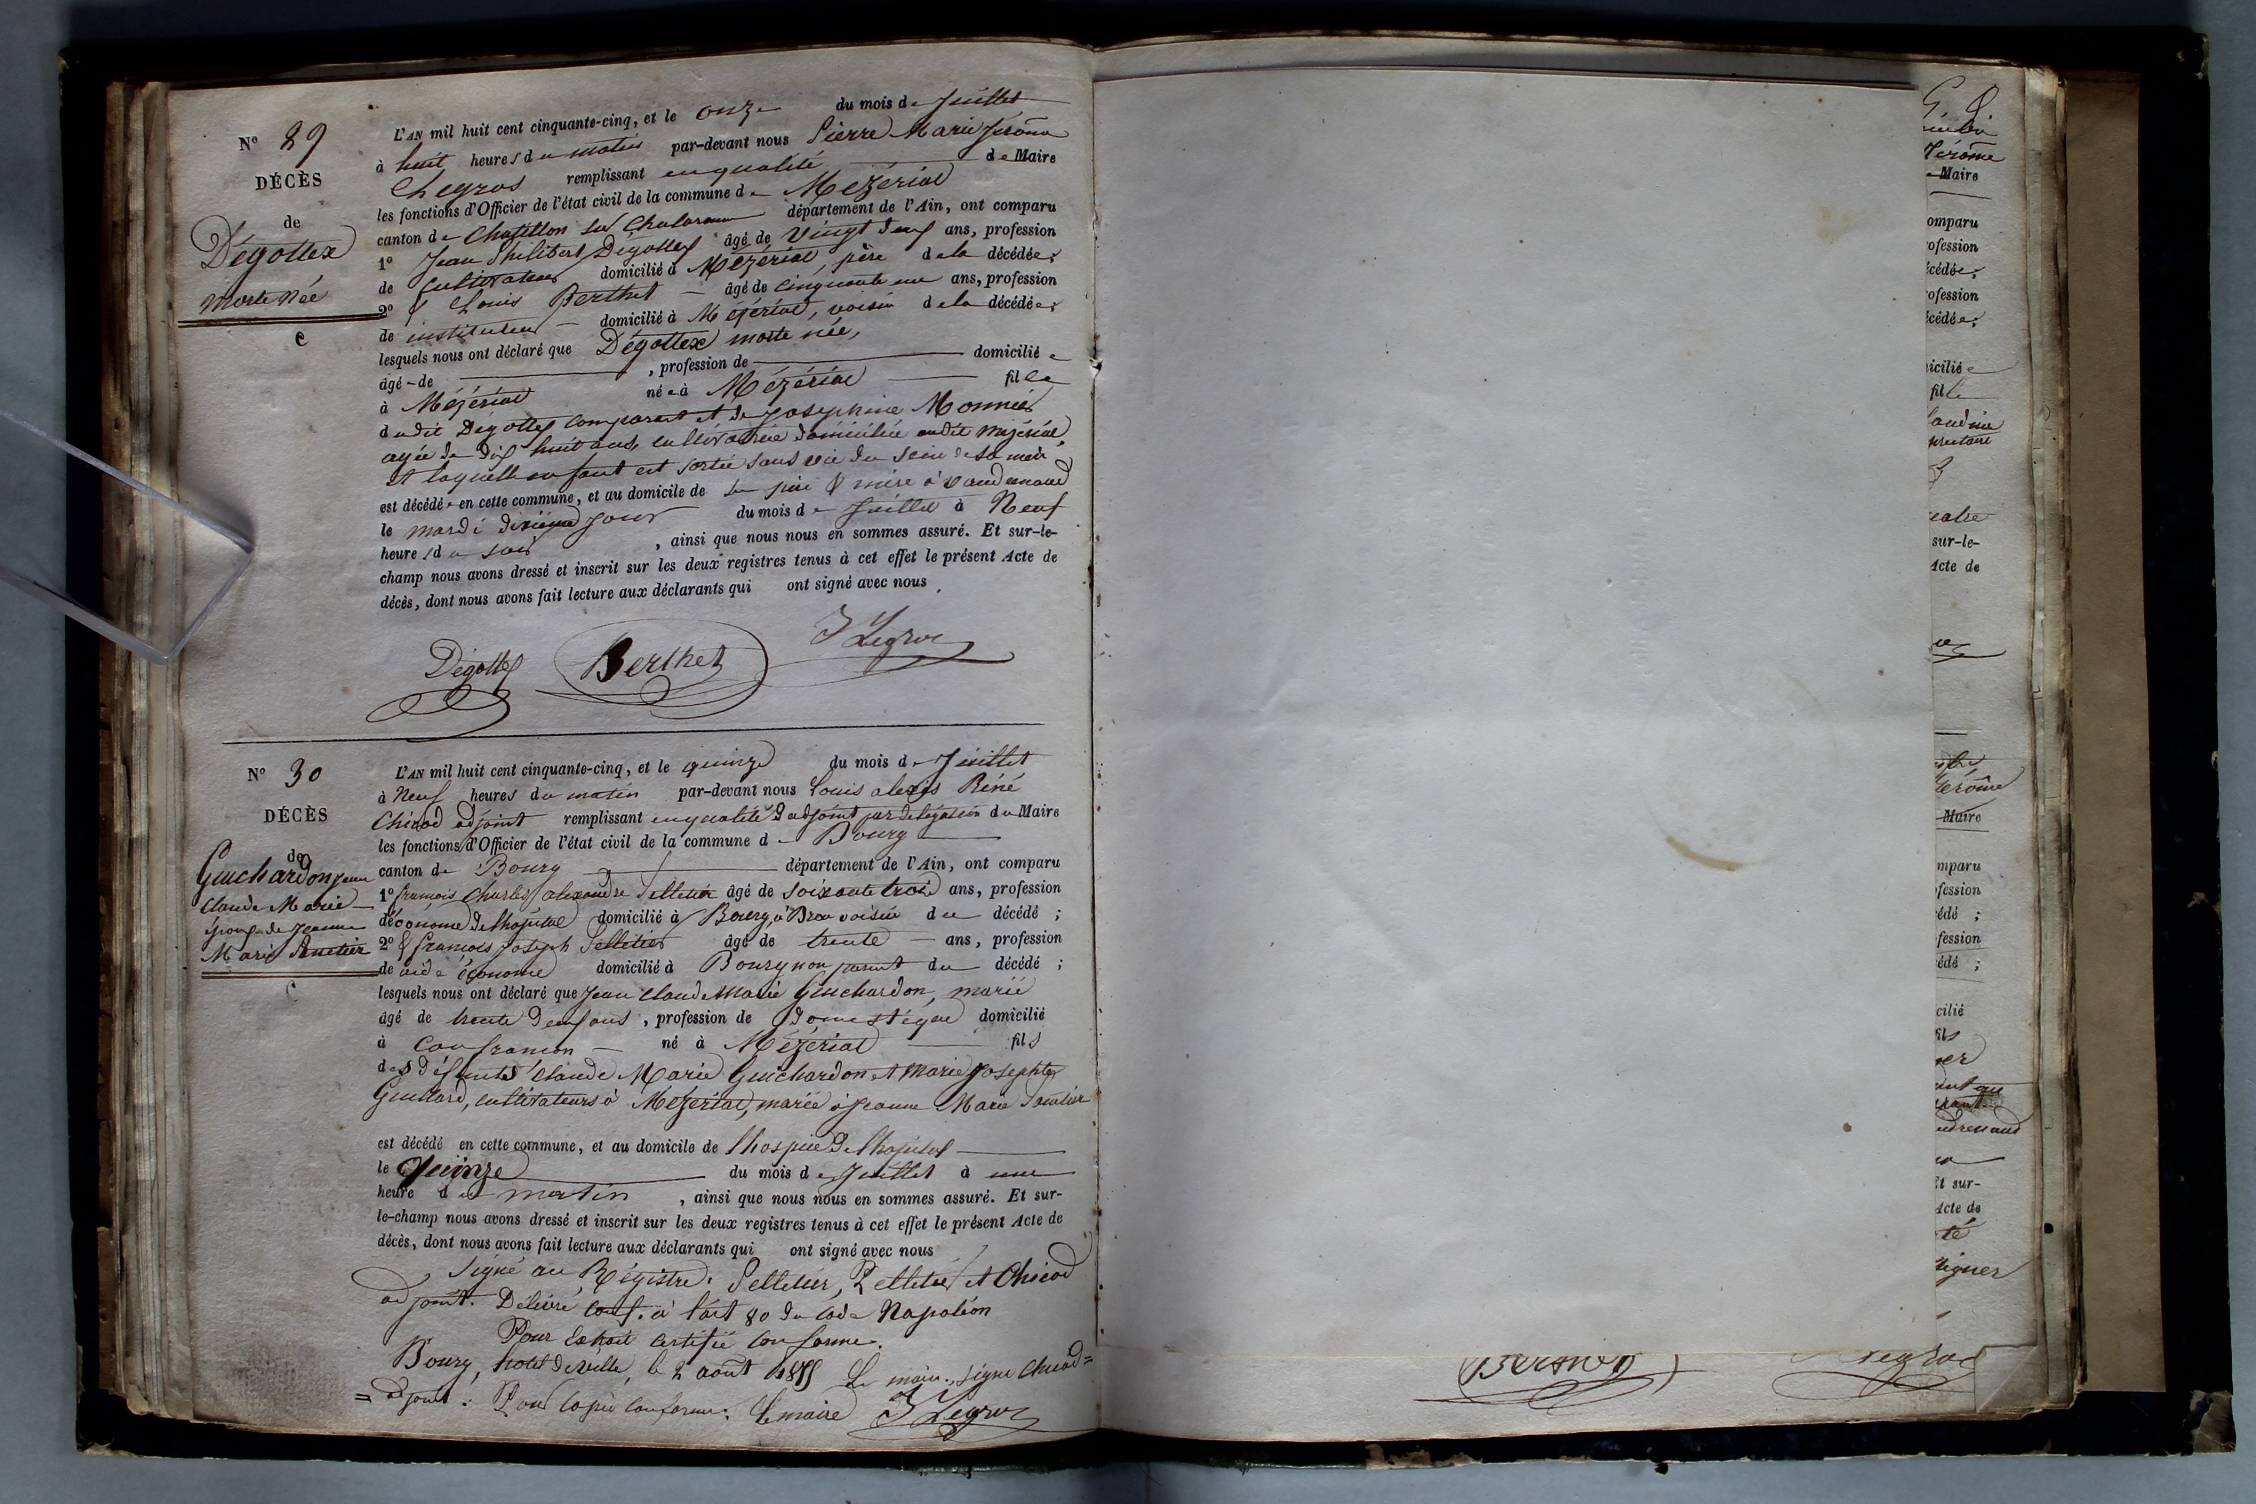 N° 29
DÉCÈS
de
Dégottex
morte née
e
L'AN mil huit cent cinquante-cinq, et le onze du mois de Juillet
à huit heures du matin par-devant nous Pierre Marie Jérôme
Legros remplissant en qualité de Maire
les fonctions d'Officier de l'état civil de la commune de Mézériat
canton de Chatillon sur Chalaronne département de l'Ain, ont comparu
1° Jean Philibert Dégottex âgé de vingt deux ans, profession
de cultivateur domicilié à Mézériat, père de la décédée;
2° & Louis Berthet âgé de cinquante un ans, profession
de instituteur domicilié à Mézériat, voisin de la décédée;
lesquels nous ont déclaré que Dégottex morte née,
âgé de , profession de domiciliée
à Mézériat née à Mézériat fille
dudit Dégottex comparant et de Josephine Monnier
agée de dix huit ans, cultivatrice domiciliée audit Mézériat,
et laquelle enfant est sortie sans vie du sein de sa mère
est décédée en cette commune, et au domicile de ses père & mère à
le mardi dixième jour du mois de Juillet à Neuf
heures du soir , ainsi que nous nous en sommes assuré. Et sur-le-
champ nous avons dressé et inscrit sur les deux registres tenus à cet effet le présent Acte de
décès, dont nous avons fait lecture aux déclarants qui ont signé avec nous.
Dégottex Berthet J Legros
N° 30
DÉCÈS
de
Guichardon Jean
Claude Marie
époux de Jeanne
Marie
c
L'AN mil huit cent cinquante-cinq, et le quinze du mois de Juillet
à Neuf heures du matin par-devant nous Louis alexis Réné
Chicod adjoint remplissant en qualité d'adjoint par délégation du Maire
les fonctions d'Officier de l'état civil de la commune de Bourg
canton de Bourg département de l'Ain, ont comparu
1° françois Charles alexandre Pelletier âgé de soixante trois ans, profession
d'économe de l'hôpital domicilié à Bourg, à Brou voisin du décédé ;
2° & françois Joseph Pelletier âgé de trente ans, profession
de aide économe domicilié à Bourg non parent du décédé ;
lesquels nous ont déclaré que Jean Claude Marie Guichardon, marié
âgé de trente deux ans , profession de domestique domicilié
à Confrançon né à Mézériat fils
des défunts Claude Marie Guichardon et Marie Josephte
cultivateurs à Mézériat, marié à Jeanne Marie
est décédé en cette commune, et au domicile de l'hospice de l'hôpital
le Quinze du mois de Juillet à une
heure du matin , ainsi que nous nous en sommes assuré. Et sur-
le-champ nous avons dressé et inscrit sur les deux registres tenus à cet effet le présent Acte de
décès, dont nous avons fait lecture aux déclarants qui ont signé avec nous
Signé au Régistre. Pelletier, Pelletier et Chicod
adjoint. Délivré conf. à l'art 80 du code Napoléon
Pour Extrait certifié conforme.
Bourg, hotel de ville, le 2 août 1855 Le maire, signé Chicod =
= adjoint. Pour copie conforme. Le maire J Legros
Jérôme
Maire
omparu
ofession
écédée;
ofession
écédée;
icilié e
fil
sur-le-
Acte de
Jérôme
Maire
mparu
fession
édé ;
fession
édé ;
cilié
fils
Et sur-
Acte de
té
signer
Legros